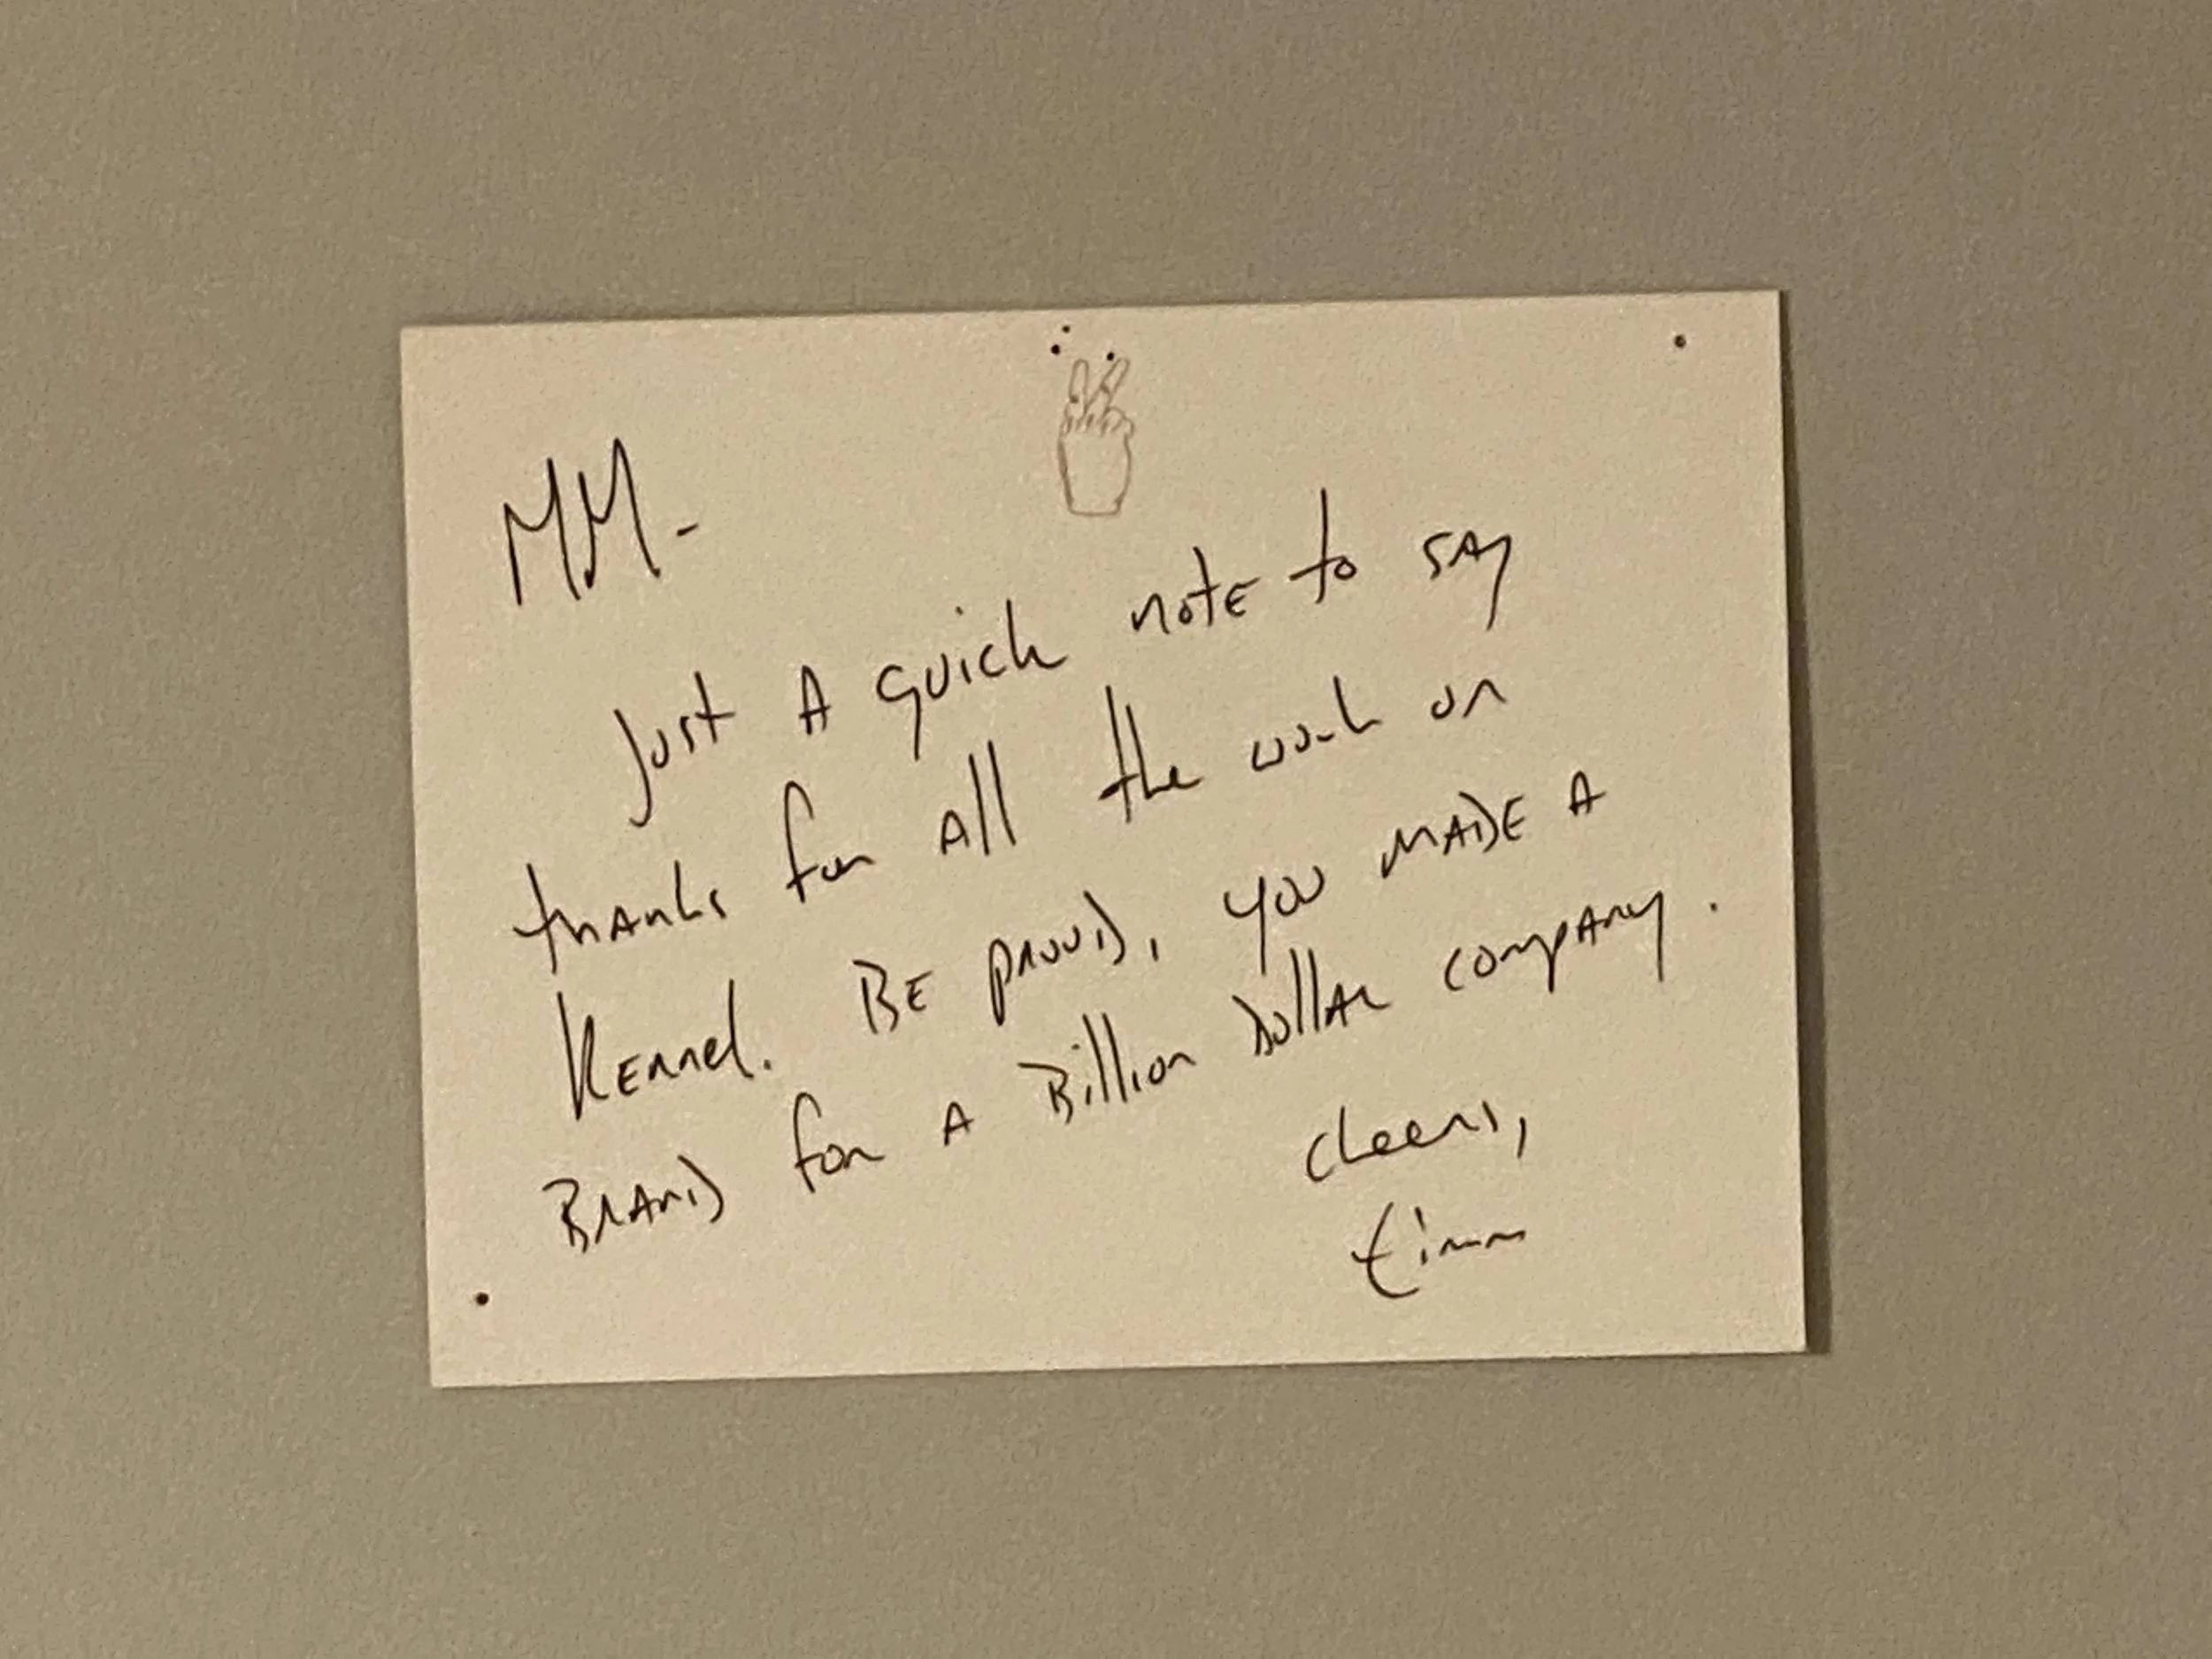 MM-
Just A quick note to say
thanks for all the work on
Kernel. BE proud, you MADE A
BRAND for A Billion Dollar company.
cheers,
timm